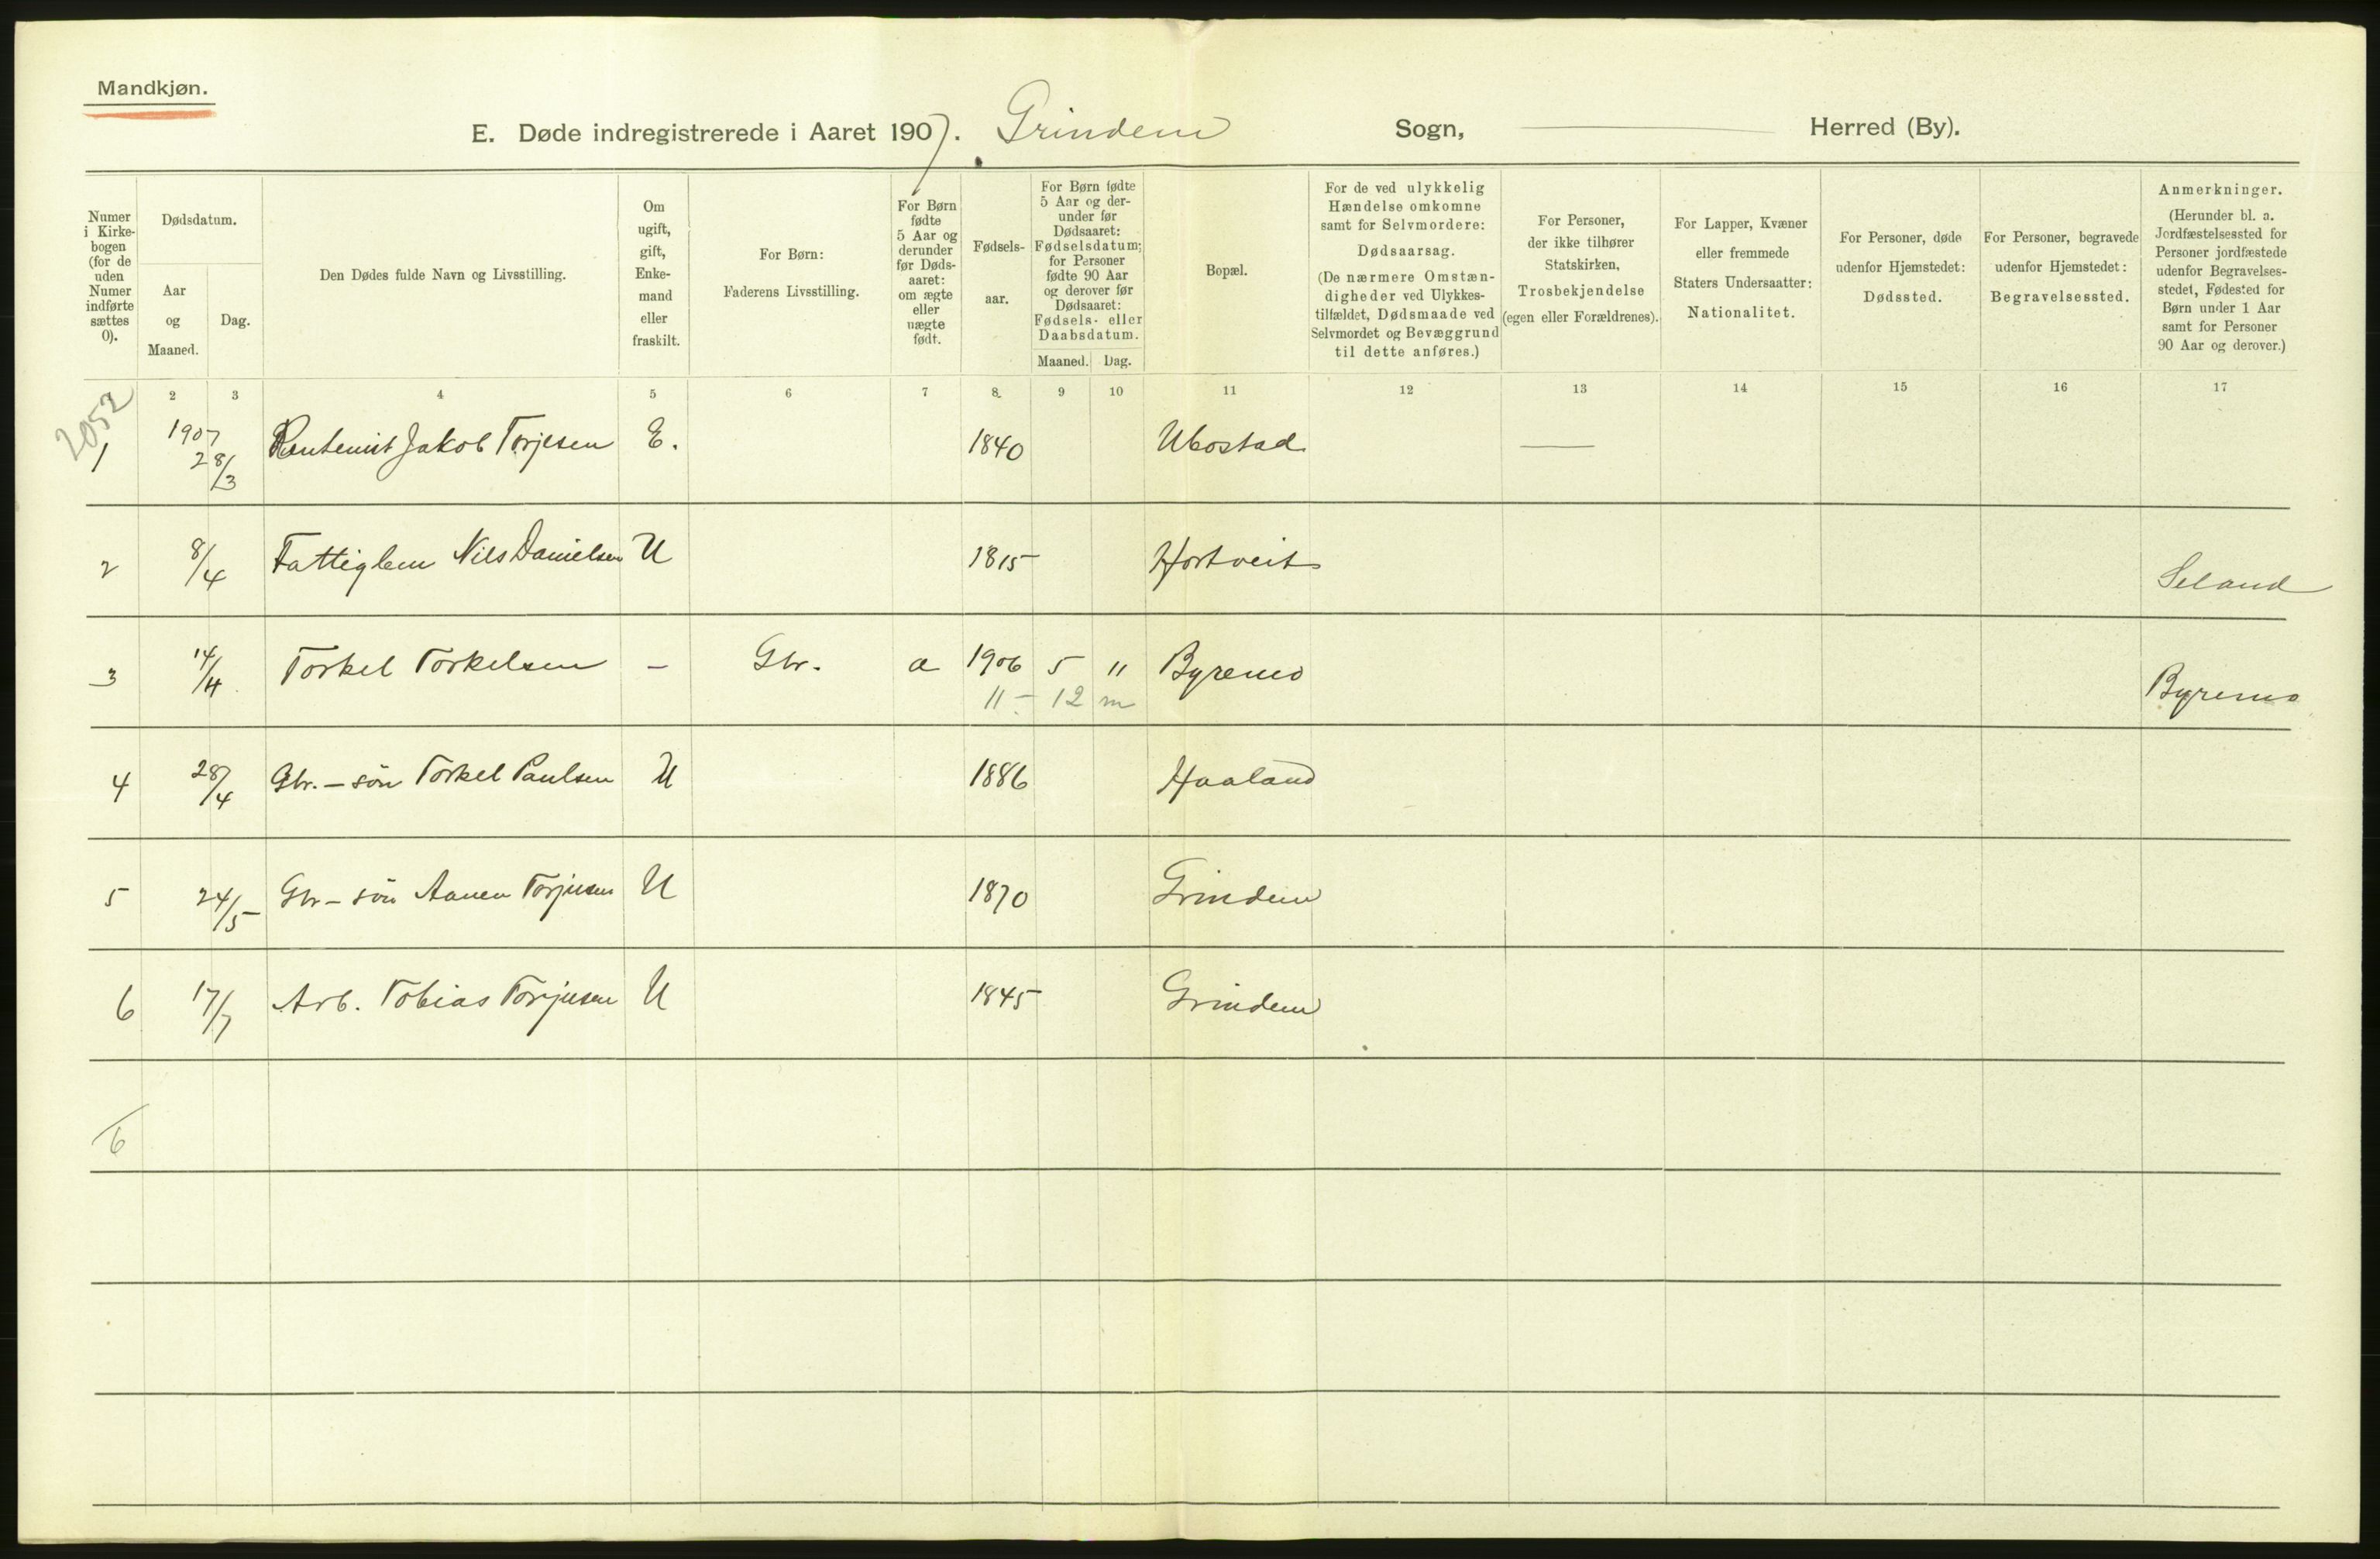 Mandkjøn.
E. Døde indregistrerede i Aaret 1907. Grindem Sogn, Herred (By).
Numer i Kirkebogen (for de uden Numer indførte sættes 0).
Dødsdatum.
Aar og Maaned.
Dag.
Den Dødes fulde Navn og Livsstilling.
Om ugift, gift, Enkemand eller fraskilt.
For Børn: Faderens Livsstilling.
For Børn fødte 5 Aar og derunder før Dødsaaret: om ægte eller uægte født.
Fødselsaar.
For Børn fødte 5 Aar og derunder før Dødsaaret: Fødselsdatum; for Personer fødte 90 Aar og derover før Dødsaaret: Fødsels- eller Daabsdatum.
Maaned. Dag.
Bopæl.
For de ved ulykkelig Hændelse omkomne samt for Selvmordere: Dødsaarsag. (De nærmere Omstændigheder ved Ulykkestilfældet, Dødsmaade ved Selvmordet og Bevæggrund til dette anføres.)
For Personer, der ikke tilhører Statskirken, Trosbekjendelse (egen eller Forældrenes).
For Lapper, Kvæner eller fremmede Staters Undersaatter: Nationalitet.
For Personer, døde udenfor Hjemstedet: Dødssted.
For Personer, begravede udenfor Hjemstedet: Begravelsessted.
Anmerkninger. (Herunder bl. a. Jordfæstelsessted for Personer jordfæstede udenfor Begravelsesstedet, Fødested for Børn under 1 Aar samt for Personer 90 Aar og derover.)
2 3 4 5 6 7 8 9 10 11 12 13 14 15 16 17
2052
1 1907 28/3 Rentenist Jakob Torjesen E. 1840 Ubostad —
2 8/4 Fattiglem Nils Danielsen U 1815 Hortveit Seland
3 14/4 Torkel Torkelsen — Gbr. a 1906 5 " Byremo Byremo
11 - 12 m
4 28/4 Gbr. - søn Torkel Paulsen U 1886 Haaland
5 24/5 Gbr - søn Aanen Torjusen U 1870 Grindem
6 17/7 Arb. Tobias Torjusen U 1845 Grindem
6